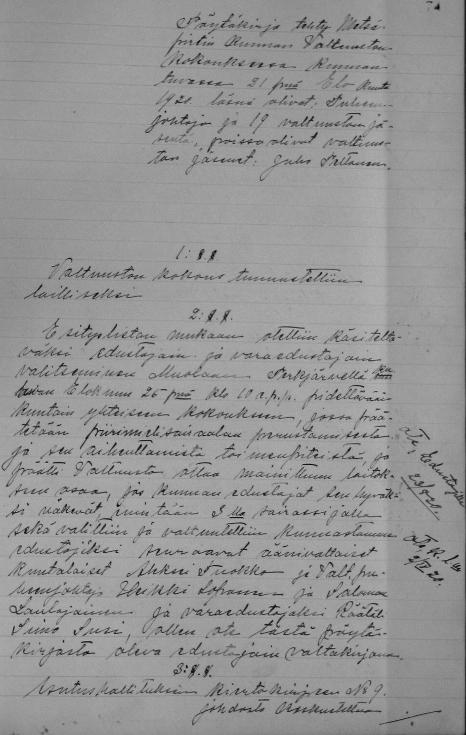 Pöytäkirja tehty Metsä-
pirtin Kunnan Valtuuston
Kokouksessa Kunnan-
tuvassa 21 pnä Elo Kuuta
1920. läsnä olivat: Puheen-
johtaja ja 19 valtuuston jä-
sentä, poissa olivat valtuus-
ton jäsenet: Juho Peltonen.
1: §.§
Valtuuston kokous tunnustettiin
lailliseksi
2: §.§.
Esityslistan mukaan otettiin käsiteltä-
väksi edustajain ja varaedustajain
valitseminen Muolaan Perkjärvellä
Elokuun 25 pnä klo 10 e.p.p. pidettävään
kuntain yhteiseen kokoukseen, jossa pää-
tetään piirimielisairaalan perustamisesta
ja sen aiheuttamista toimenpiteistä, ja
päätti Valtuusto ottaa mainittuun laitok-
seen osaa, jos kunnan edustajat sen hyväk-
si näkevät, enintään 3 lla sairassijalla
sekä valittiin ja valtuutettiin kunnastamme
edustajiksi seuraavat äänivaltaiset
kuntalaiset Aleksi Tuokko ja Valt. pu-
heenjohtaja Heikki Lofransen ja Salomon
Lautajainen ja varaedustajaksi Räätäli
Simo Susi, ollen ote tästä pöytä-
kirjasta oleva edustajain valtakirjana.
3: §.§.
Asutushallituksen kiertokirjeen No 9.
johdosta keskusteltua
Ote Edustajille